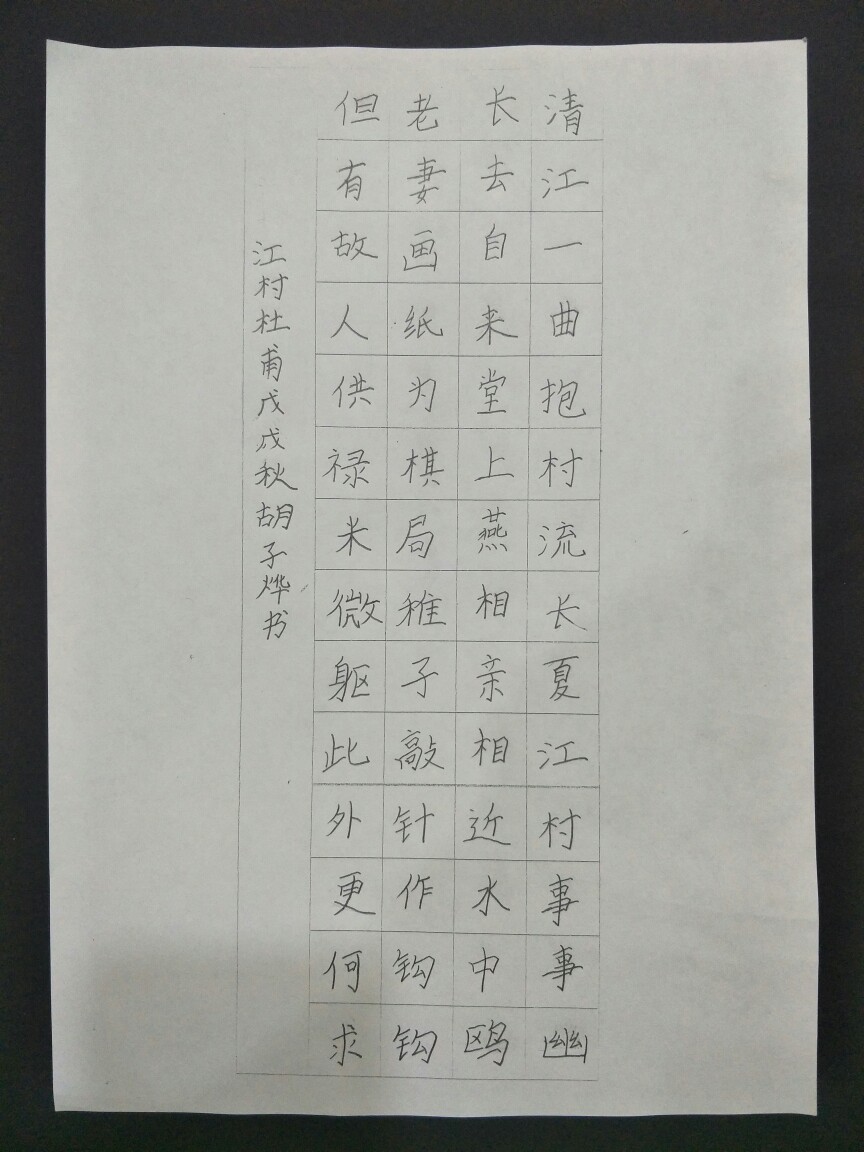 清江一曲抱村流长夏江村事事幽
长去自来堂上燕相亲相近水中鸥
老妻画纸为棋局稚子敲针作钩钩
但有故人供禄米微躯此外更何求
江村杜甫戊戌秋胡子烨书